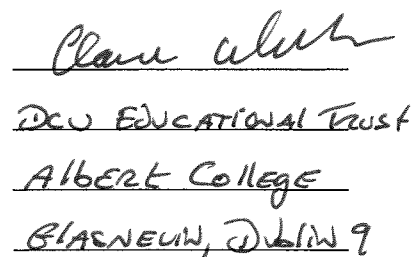 Claire
DCU EDUCATIONAL TRUST
Albert College
GLASNEVIN, Dublin 9